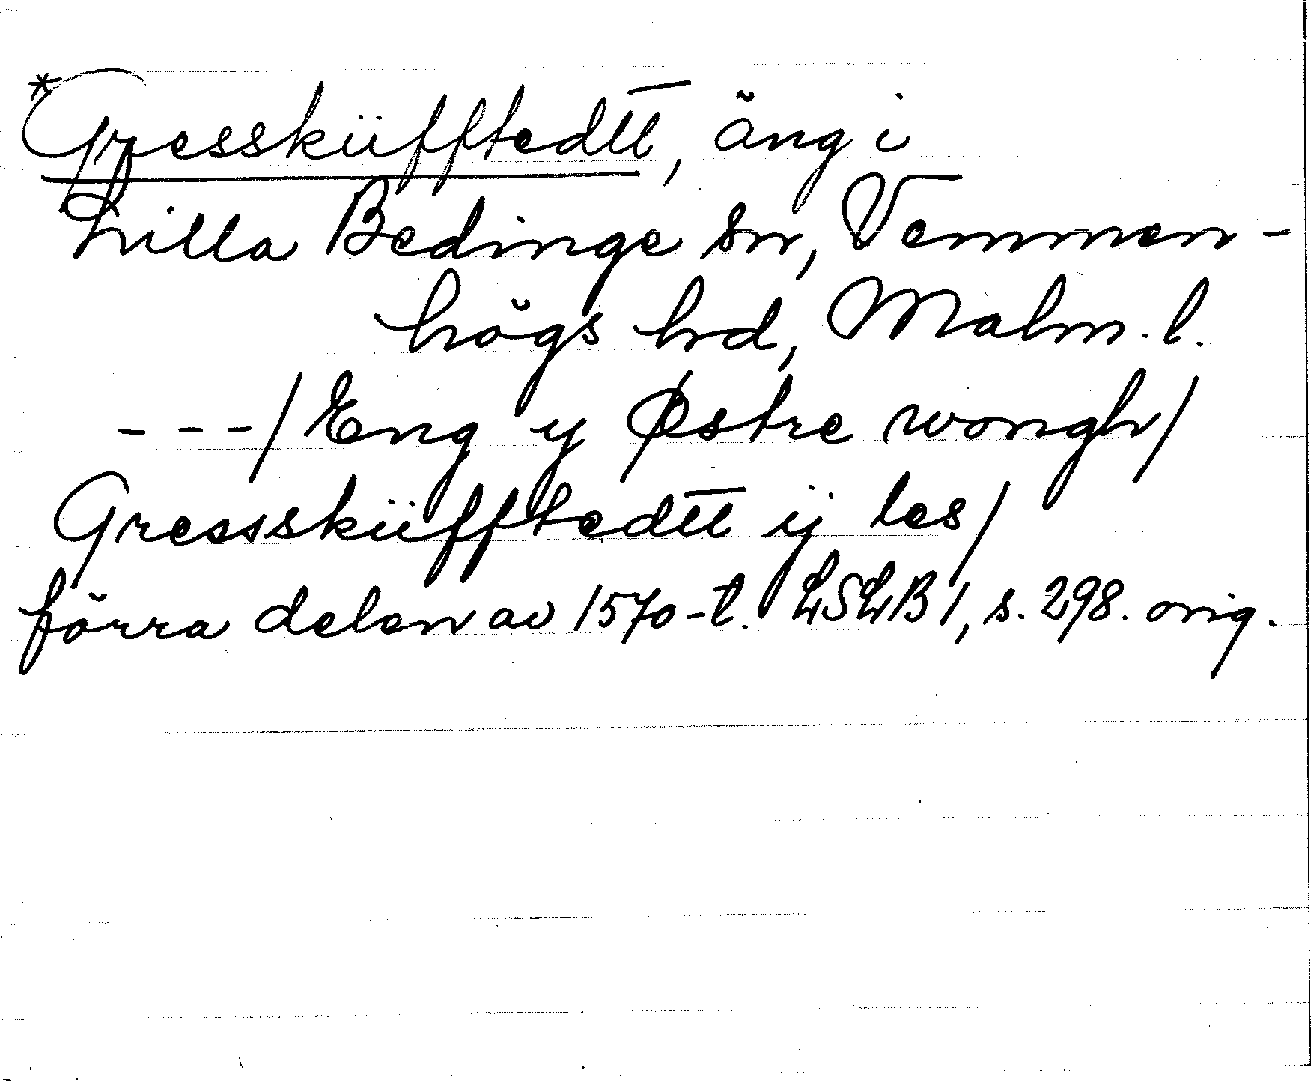 *Gressküfftedtt, äng i
Lilla Bedinge sn, Vemmen-
högs hd, Malm. l.
---/Eng y Østre wongh/
Gresssküfftedtt ij les/
förra delen av 1570-t. LSLB 1, s. 298. orig.